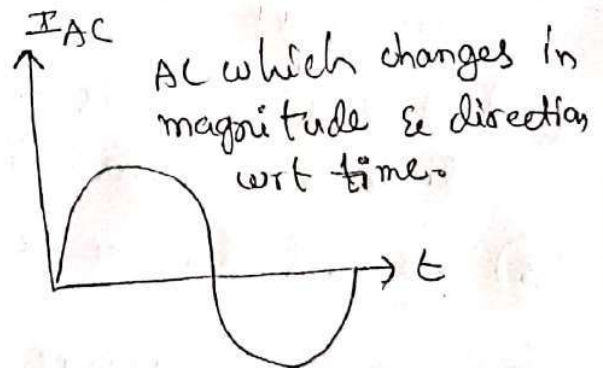 I AC
AC which changes in
magnitude & direction
wrt time.
t